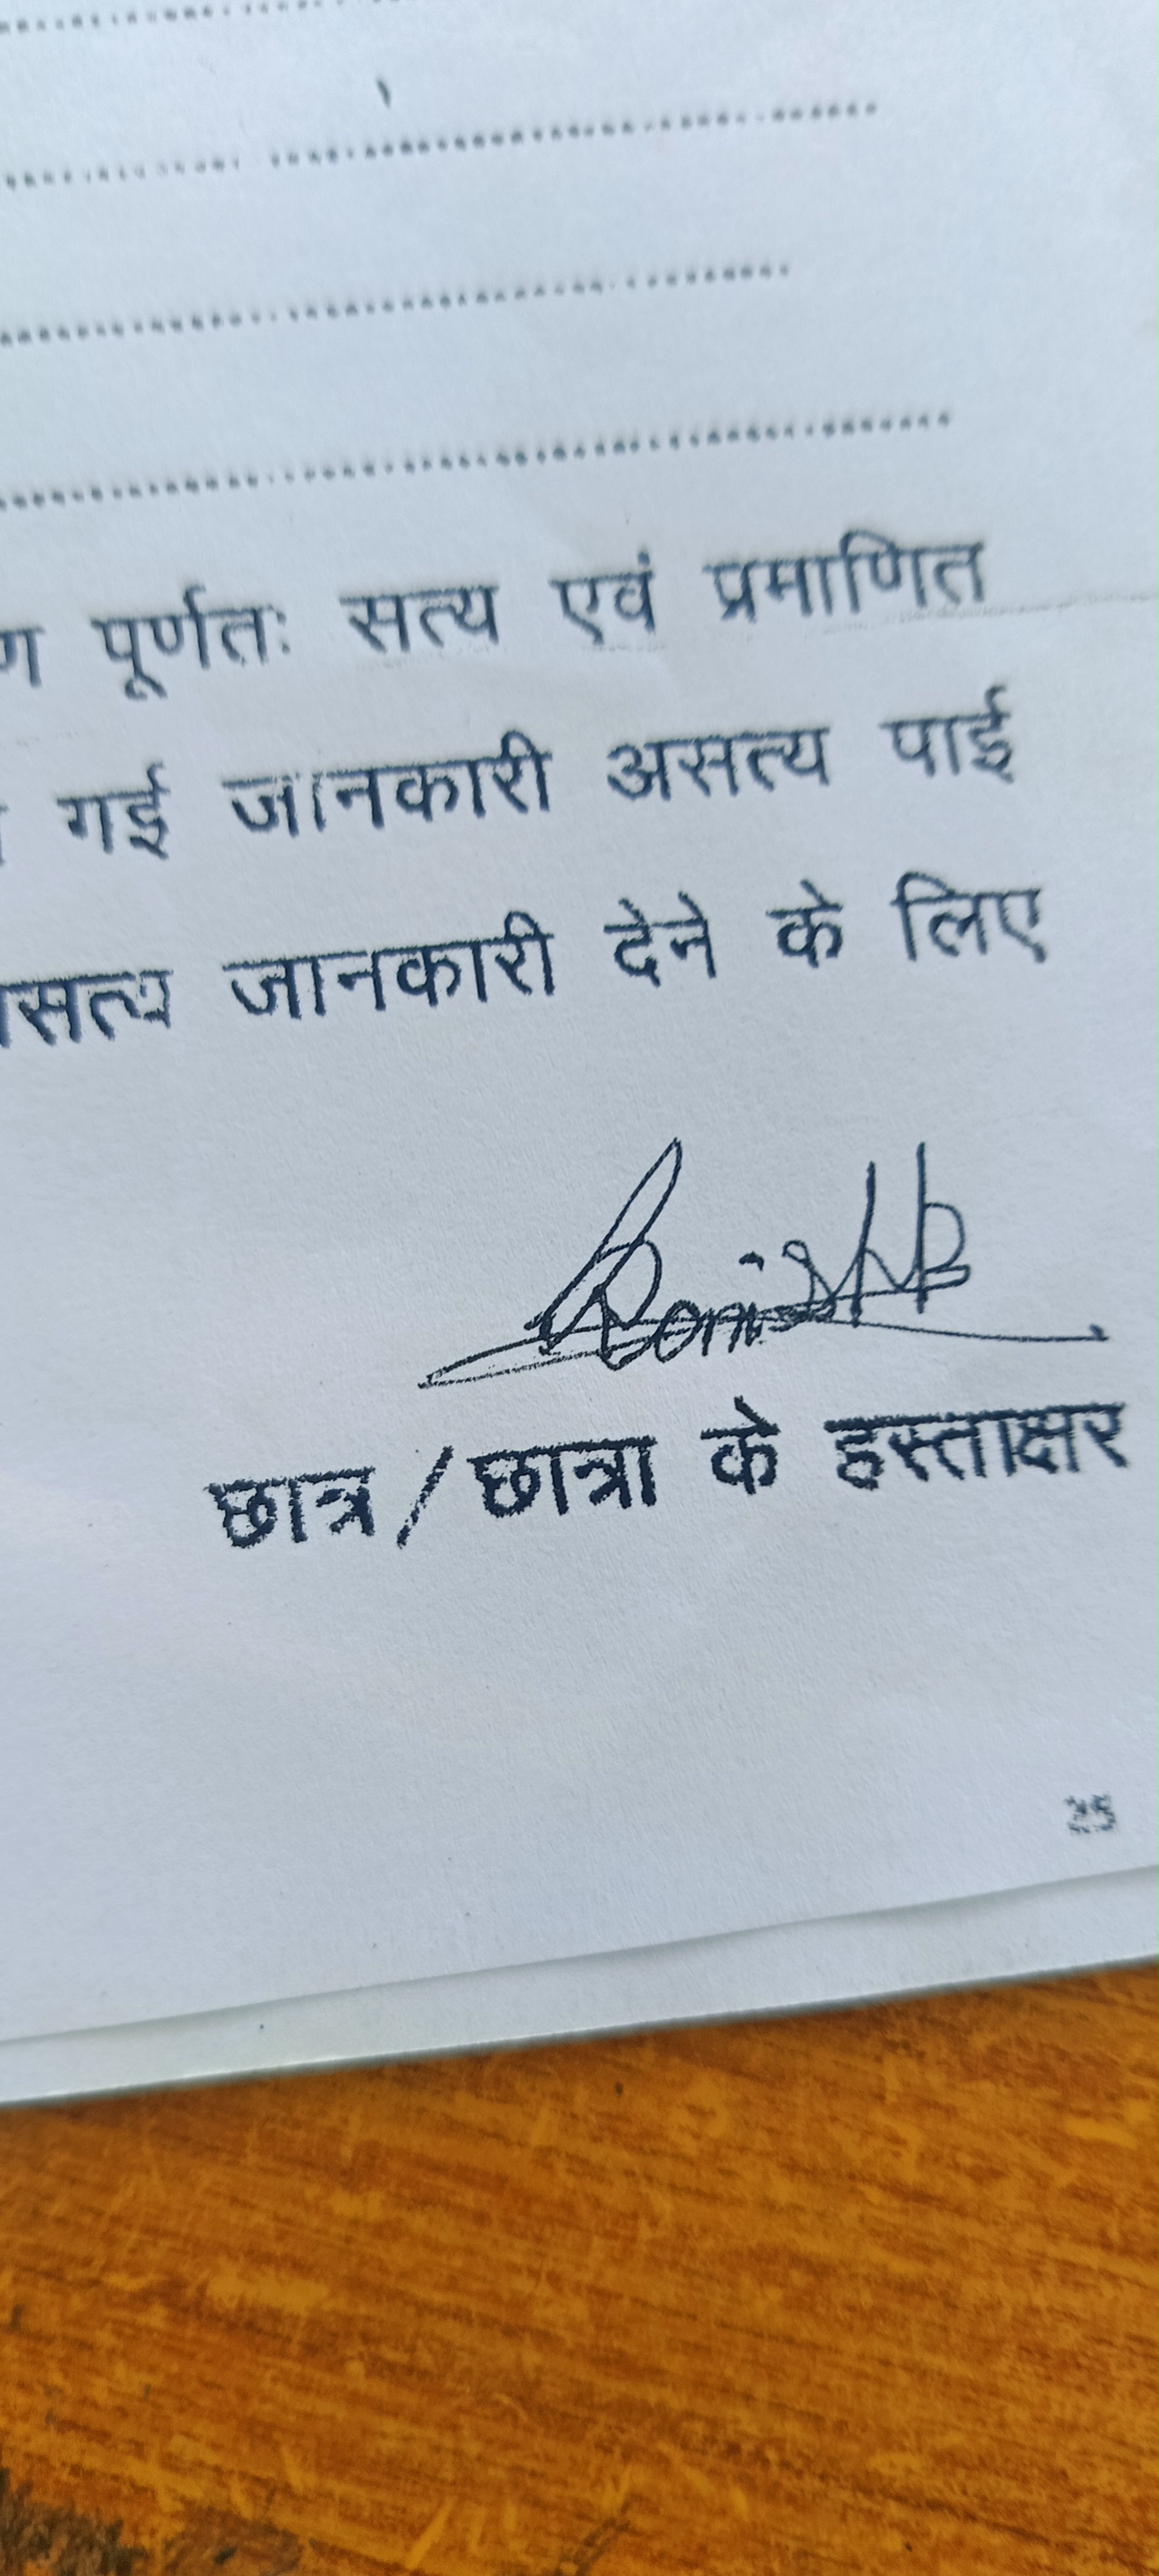 पूर्णतः सत्य एवं प्रमाणित
गई जानकारी असत्य पाई
जानकारी देने के लिए
छात्र/छात्रा के हस्ताक्षर
25